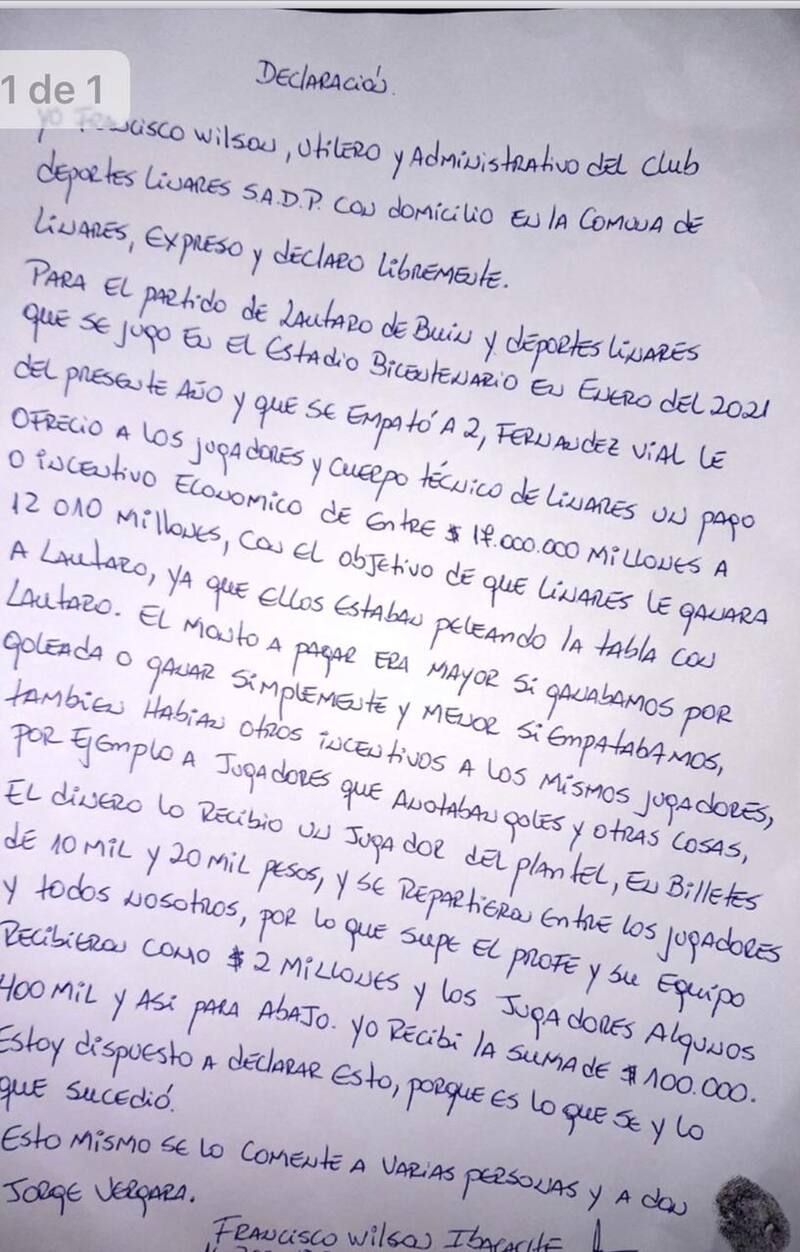 1 de 1
Declaración.
yo Francisco Wilson, utilero y administrativo del club
deportes Linares S.A.D.P. con domicilio en la comuna de
Linares, expreso y declaro libremente.
Para el partido de Lautaro de Buin y deportes Linares
que se jugo en el Estadio Bicentenario en Enero del 2021
del presente año y que se empató a 2, Fernandez Vial le
ofrecio a los jugadores y cuerpo técnico de Linares un pago
o incentivo economico de entre $ millones a
12 o 10 millones, con el objetivo de que Linares le ganara
a Lautaro, ya que ellos estaban peleando la tabla con
Lautaro. El monto a pagar era mayor si ganabamos por
goleada o ganar simplemente y menor si empatabamos,
tambien habian otros incentivos a los mismos jugadores,
por ejemplo a jugadores que anotaban goles y otras cosas,
El dinero lo recibio un jugador del plantel, en billetes
de 10 mil y 20 mil pesos, y se repartieron entre los jugadores
y todos nosotros, por lo que supe el profe y su equipo
recibieron como $ 2 millones y los jugadores algunos
400 mil y asi para abajo. yo recibi la suma de $ 100.000.
Estoy dispuesto a declarar esto, porque es lo que se y lo
que sucedió.
Esto mismo se lo comente a varias personas y a don
Jorge Vergara.
Francisco Wilson Ibacache